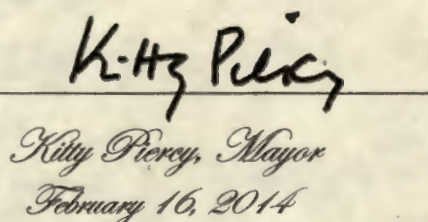 Kitty Piercy
Kitty Piercy, Mayor
February 16, 2014